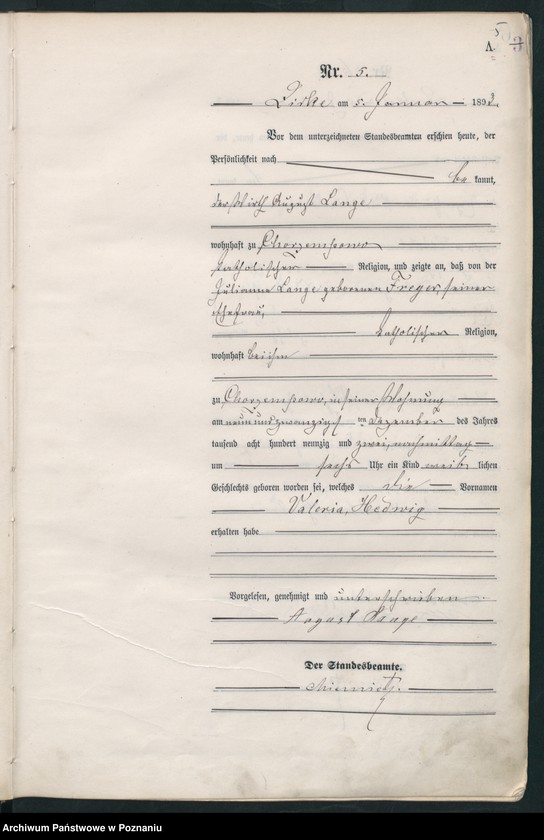 5
A. 3
Nr. 5.
Zirke am 5. Januar 1893.
Vor dem unterzeichneten Standesbeamten erschien heute, der
Persönlichkeit nach
be kannt,
der Wirth August Lange
wohnhaft zu Chorzempowo
katholischer Religion, und zeigte an, daß von der
Julianna Lange geborenen Freyer, seiner
Ehefrau,
katholischer Religion,
wohnhaft bei ihm
zu Chorzempowo, in seiner Wohnung
am neun und zwanzigsten Dezember des Jahres
tausend acht hundert neunzig und zwei, nachmittag
um sechs Uhr ein Kind weib lichen
Geschlechts geboren worden sei, welches die Vornamen
Valeria, Hedwig
erhalten habe
Vorgelesen, genehmigt und unterschrieben
August Lange
Der Standesbeamte.
Archiwum Państwowe w Poznaniu